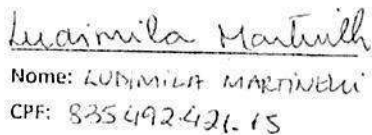 Ludimila Martinelli
Nome: LUDIMILA MARTINELLI
CPF: 835492.421.15